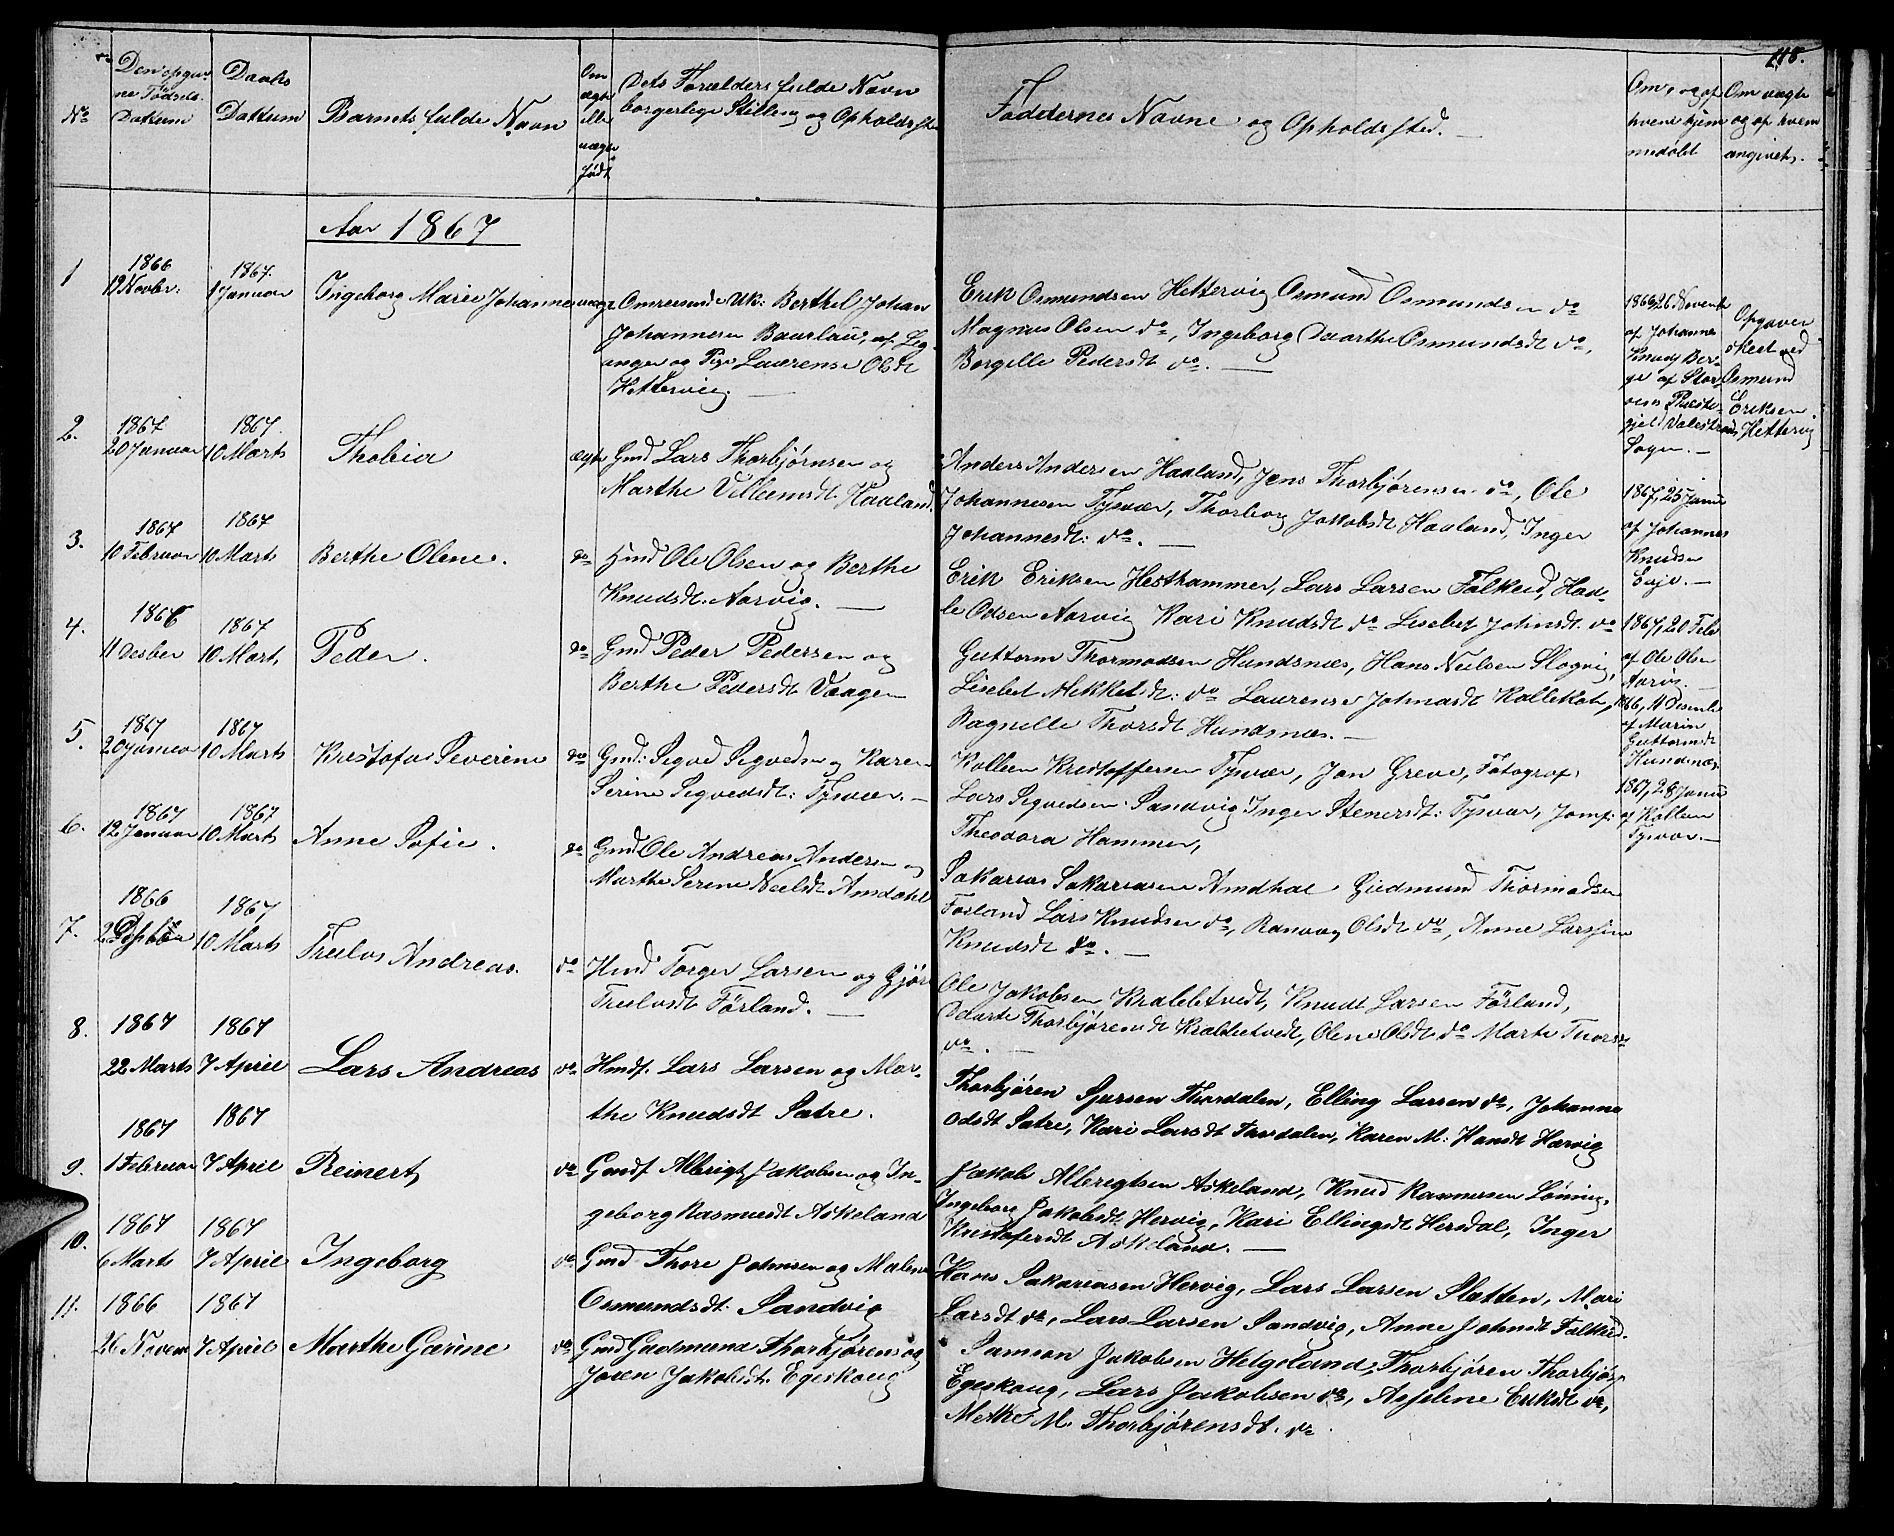 118.
No
Den opgiv
ne Fødsels-
Dattum
Daabs
Dattum
Barnets fulde Navn
Om
ægte
elle
uægte
født
Dets Forælders fulde Navn
borgerlige Stilling og Opholdsste
Faddernes Navne og Opholdssted.
Om, og af
hvem hjem
medøbt
Om uægte
og af hvem
angivet.
Aar 1867
1
1866
19 Novbr:
1867.
1 Januar
Ingeborg Marie Johanne
uægte
Omreisende Uk: Berthel Johan
Johannesen Baarlau, af Leg-
anger og Pige Laurense Olsdt
Hettervig
Erik Osmundsen Hettervig Osmund Osmundsen do
Magnus Olsen do, Ingeborg Daarthe Osmundsdt do,
Borgille Pedersdt do.
1866 26 Novemb
af Johanne
Knuds Ber-
ge af Stor-
øens Præste-
gjeld Valestrands
Sogn.
Opgaven
skeet ved
Osmund
Eriksen
Hettervig
2.
1867
20 Januar
1867.
10 Marts
Thobia
ægte
Gmd Lars Thorbjørnsen og
Marthe Villumsdt Haaland.
Anders Andersen Haaland, Jens Thorbjørensen do, Ole
Johannesen Tysvær, Thorborg Jakobsdt Haaland, Inger
Johannesdt: do.
1867, 25 Janu
af Johannes
Knudsen
Eeje.
3.
1867
10 Februar
1867
10 Marts
Berthe Olene.
do
Hmd Ole Olsen og Berthe
Knudsdt. Aarvig.
Erik Eriksen Hesthammer, Lars Larsen Falkeid, Had-
le Odsen Aarvig Kari Knudsdt do Lisebet Johnsdt. do
1867, 20 Feb
af Ole Olsen
Aarvig
4.
1866
11 Desber
1867
10 Mart,
Peder.
do
Gmd Peder Pedersen og
Berthe Pedersdt Vaagen
Guttorm Thormodsen Hundsnæs, Hans Neilsen Slogvig,
Lisebet Mekkelsdt: do Laurense Johnasdt Kallekodt,
Ragnelle Thorsdt Hundsnæs.
1866, 11 Desemb
af Marin
Guttormsdt
Hundsnæs
5.
1867
20 Januar
1867
10 Marts
Krestofer Severine
do
Gmd: Sigvd Sigvedsen og Karen
Serine Sigvedsdt: Tysvær.
Kolleen Krestoffersen Tysvær, Jan Greve, Fotograf,
Lars Sigvedsen Sandvig Inger Stenersdt: Tysvær, Jomf:
Theodora Hammer,
1867, 28 Janu
af Kolleen
Tysvær.
6.
1867
12 Januar
1867
10 Marts
Anne Sofie.
do
Gmd Ole Andreas Andersen og
Marthe Serine Neilsdt Amdahl
Sakarias Sakariasen Amdhal Gudmund Thormodsen
Førland Lars Knudsen do, Ranvey Olsdt do, Anne Larssine
Knudsdt do.
7.
1866
Desber
1867
10 Marts
Trulos Andreas.
do
Hmd Torger Larsen og Gjør
Truelsdt Førland.
Ole Jakobsen Krabbetvedt, Knud Larsen Førland,
Daarte Thorbjørensdt Krabbetvedt, Olene Olsdt do Marte Thorsdt
do.
8.
1867
22 Marts
1867
7 April
Lars Andreas
do
Hmdf. Lars Larsen og Mar-
the Knudsdt Satre.
Thorbjøren Sjursen Thordalen, Elling Larsen do, Johanna
Odsdt Satre, Kari Larsdt Tordalen, Karen M: Hansdt Hervig
9.
1867
1 Februar
1867
7 April
Reinert,
do
Gmdf Albrigt Jakobsen og In-
geborg Rasmusdt Askeland
Jakob Albregtsen Askeland, Knud Rasmussen Løning,
Ingeborg Jakobsdt Hervig, Kari Ellingsdt Hersdal, Inger
Krestofersdt Askeland.
10.
1867
6 Marts
1867
7 April
Ingeborg
do
Gmd Thore Johnsen og Malene
Osmundsdt: Sandvig
Hans Sakariasen Hervig, Lars Larsen Slatten, Mari
Larsdt do, Lars Larsen Sandvig, Anne Johnsdt Falkeid.
11.
1866
26 Novem
1867
7 April
Marthe Garine
do
Gmd Gudmund Thorbjøren og
Joren Jakobsdt Egeskoug
Samson Jakobsen Helgeland, Thorbjøren Thorbjør
Egeskoug, Lars Jakobsen do, Asseline Eriksdt do,
Metke M. Thorbjørensdt. do.